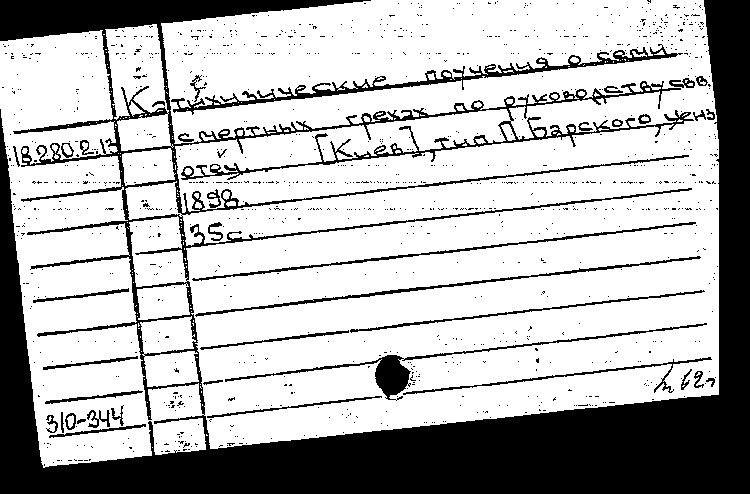 Катихизические поучения о семи
смертных грехах по руководству свв.
18.280.2.13
отец. [Киев], тип. П. Барского, ценз.
1898.
35 с.
310-344